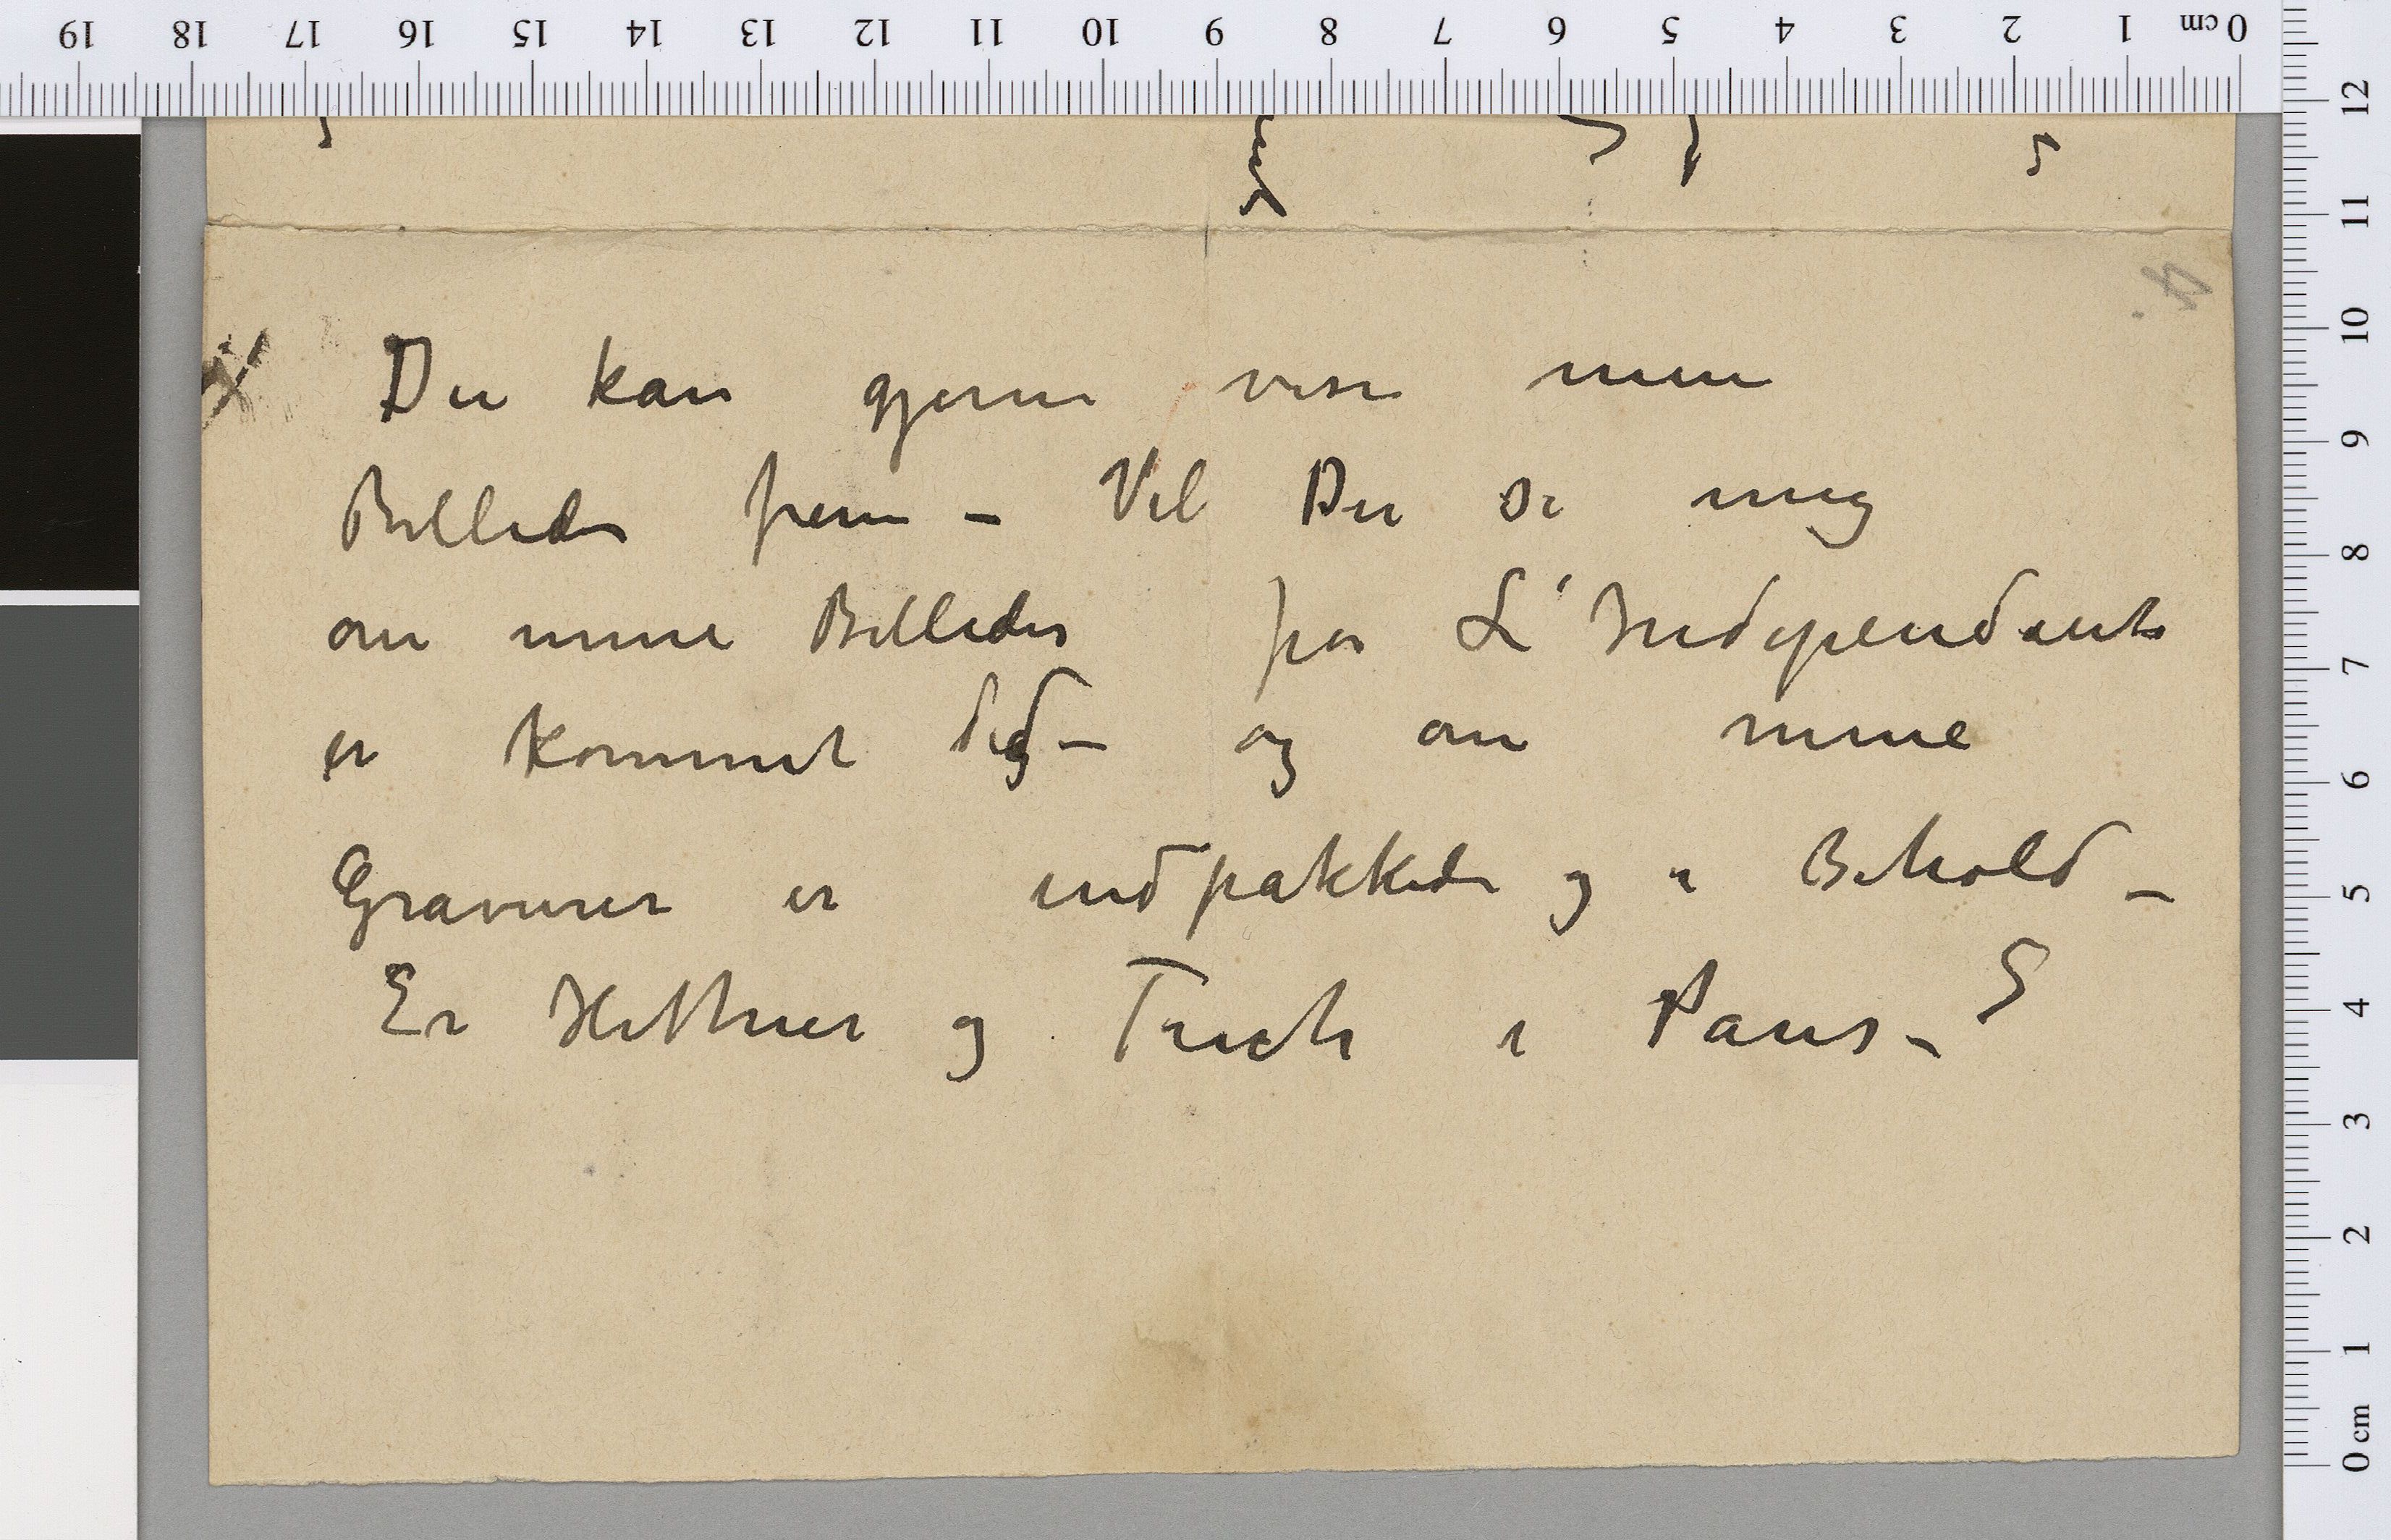 19 18 17 16 15 14 13 12 11 10 9 8 7 6 5 4 3 2 1 0 cm
12 11 10 9 8 7 6 5 4 3 2 1 0 cm
4
X Du kan gjerne vise mine
Billeder frem – Vil Du si mig
om mine Billeder fra L'Independants
er kommet did – og om mine
Gravurer er indpakkede og i Behold –
Er Hettner og Tuch i Paris – ?